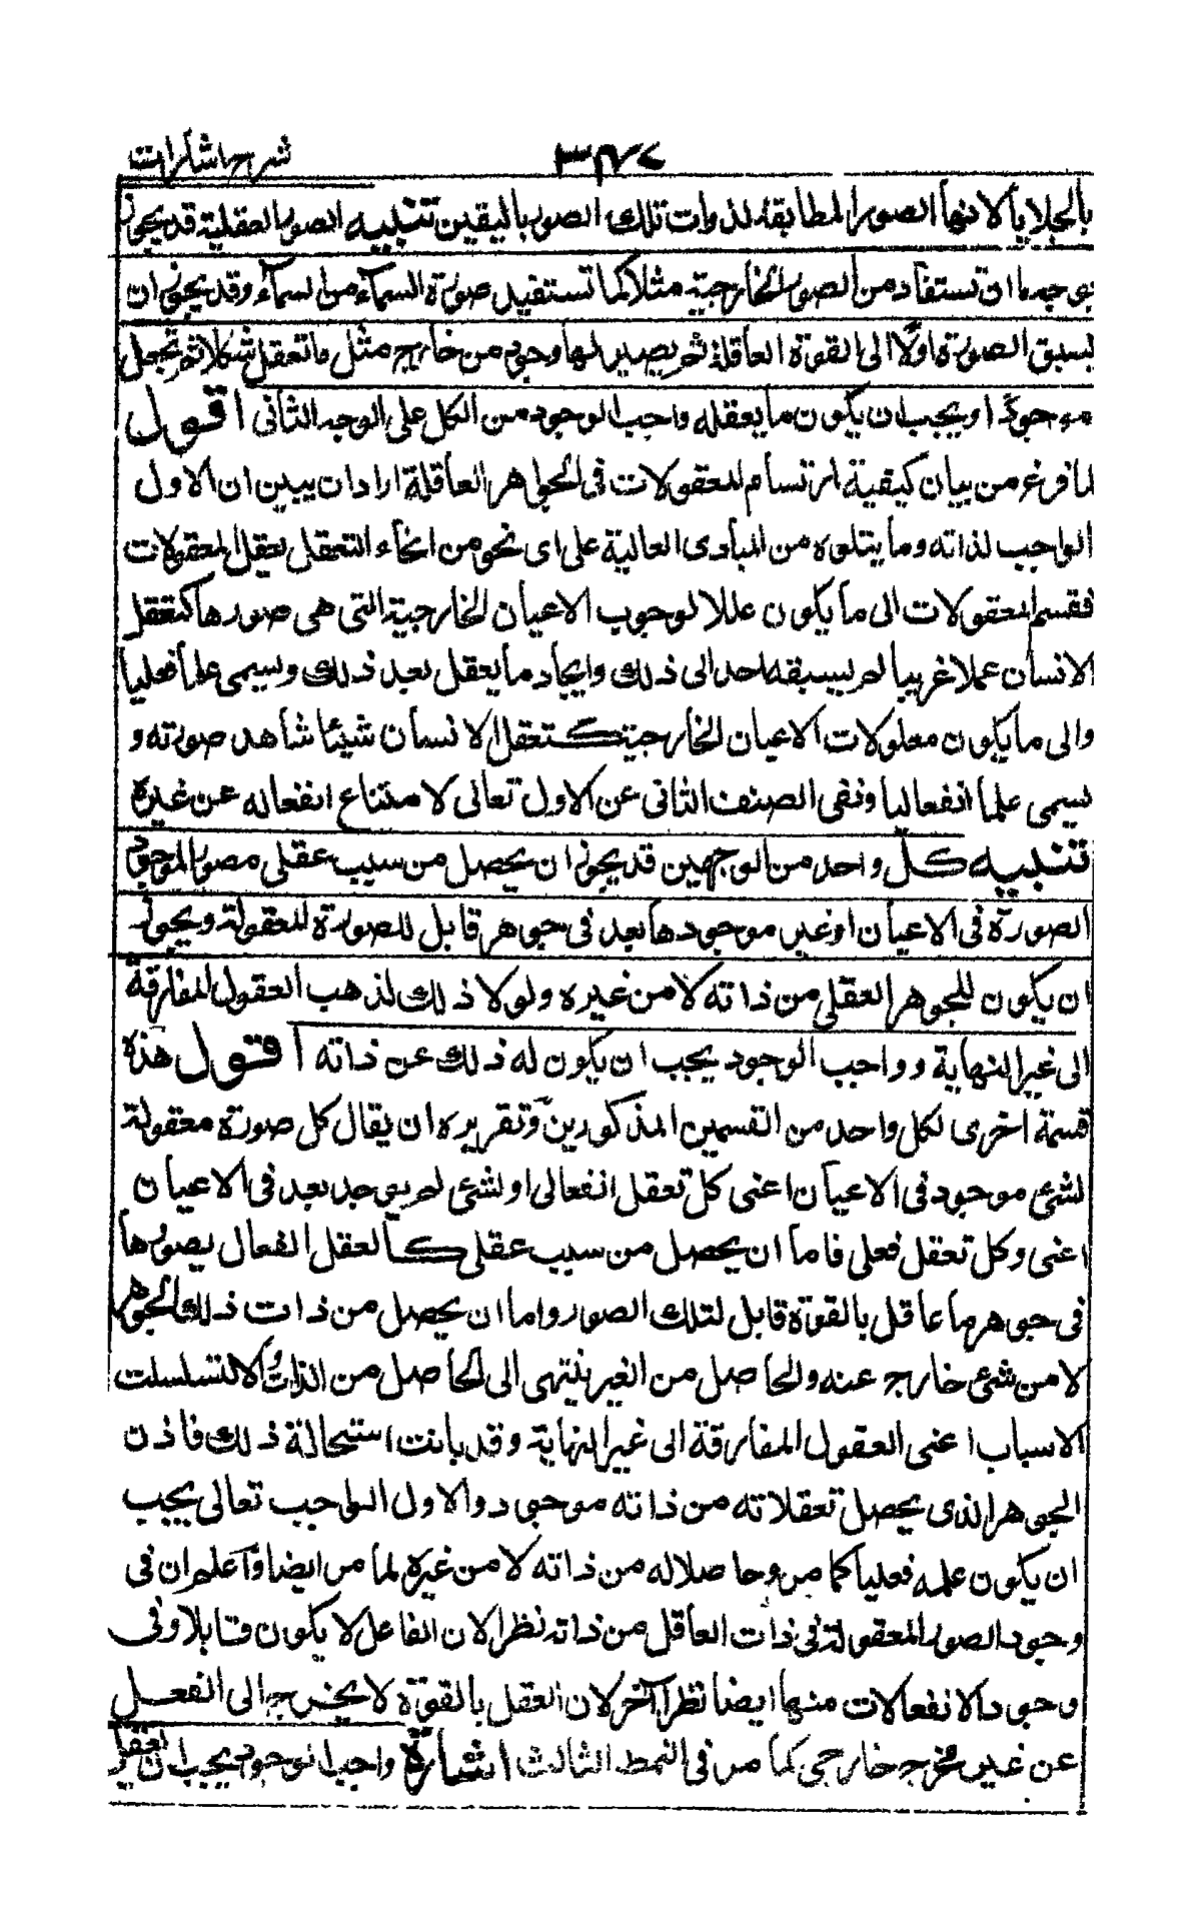 شرح اشارات
بالجلايا لانها الصور المطابقة لذوات تلك الصور باليقين تنبيه الصور العقلية قد يجوز
بوجه ما ان تستفاد من الصور الخارجية مثلا كما تستفيد صورة السماء من السماء وقد يجوز ان
تسبق الصورة اولا الى القوة العاقلة ثم يصير لها وجود من خارج مثل ما تعقل شكلا ثم تجعل
موجودا ويجب ان يكون ما يعقله واجب الوجود من الكل على الوجه الثانى اقول
لما فرغ من بيان كيفية ارتسام المعقولات فى الجواهر العاقلة اراد ان يبين ان الاول
الواجب لذاته وما يتلوه من المبادى العالية على اى نحو من انحاء التعقل يعقل المعقولات
فقسم المعقولات الى ما يكون عللا لوجوب الاعيان الخارجية التى هى صورها كتعقل
الانسان عملا غريبا لم يسبقه احد الى ذلك وايجاد ما يعقل بعد ذلك ويسمى علما فعليا
والى ما يكون معلولات الاعيان الخارجية كتعقل الانسان شيئا شاهد صورته و
يسمى علما انفعاليا ونفى الصنف الثانى عن الاول تعالى لامتناع انفعاله عن غيره
تنبيه كل واحد من الوجهين قد يجوز ان يحصل من سبب عقلى مصور لموجود
الصورة فى الاعيان او غير موجودها بعد فى جوهر قابل للصورة المعقولة ويجوز
ان يكون للجوهر العقلى من ذاته لا من غيره ولولا ذلك لذهب العقول المفارقة
الى غير النهاية وواجب الوجود يجب ان يكون له ذلك عن ذاته اقول هذه
قسمة اخرى لكل واحد من القسمين المذكورين وتقريره ان يقال كل صورة معقولة
لشئ موجود فى الاعيان اعنى كل تعقل انفعالى او لشئ لم يوجد بعد فى الاعيان
اعنى وكل تعقل فعلى فاما ان يحصل من سبب عقلى كالعقل الفعال يصورها
فى جوهر ما عاقل بالقوة قابل لتلك الصور واما ان يحصل من ذات ذلك الجوهر
لا من شئ خارج عنه والحاصل من الغير ينتهى الى الحاصل من الذات والا لتسلسلت
الاسباب اعنى العقول المفارقة الى غير النهاية وقد بانت استحالة ذلك فاذن
الجوهر الذى يحصل تعقلاته من ذاته موجود والاول الواجب تعالى يجب
ان يكون علمه فعليا كما مر وحاصلا له من ذاته لا من غيره لما مر ايضا واعلم ان فى
وجود الصور المعقولة فى ذات العاقل من ذاته نظرا لان الفاعل لا يكون قابلا وفى
وجود الانفعالات منها ايضا نظرا آخر لان العقل بالقوة لا يخرج الى الفعل
عن غير مخرج خارجى كما مر فى النمط الثالث اشارة واجب الوجود يجب ان يعقل